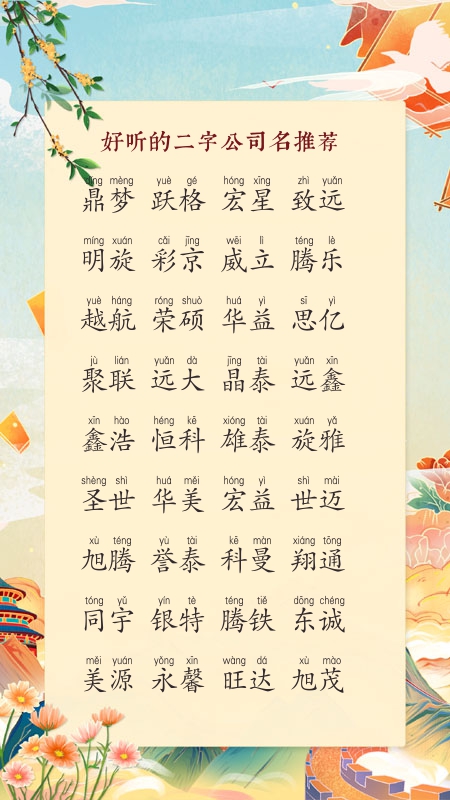 好听的二字公司名推荐
dǐng mèng yuè gé hóng xīng zhì yuǎn
鼎梦 跃格 宏星 致远
míng xuán cǎi jīng wēi lì téng lè
明旋 彩京 威立 腾乐
yuè háng róng shuò huá yì sī yì
越航 荣硕 华益 思亿
jù lián yuǎn dà jīng tài yuǎn xīn
聚联 远大 晶泰 远鑫
xīn hào héng kē xióng tài xuán yǎ
鑫浩 恒科 雄泰 旋雅
shèng shì huá měi hóng yì shì mài
圣世 华美 宏益 世迈
xù téng yù tài kē màn xiáng tōng
旭腾 誉泰 科曼 翔通
tóng yǔ yín tè téng tiě dōng chéng
同宇 银特 腾铁 东诚
měi yuán yǒng xīn wàng dá xù mào
美源 永馨 旺达 旭茂